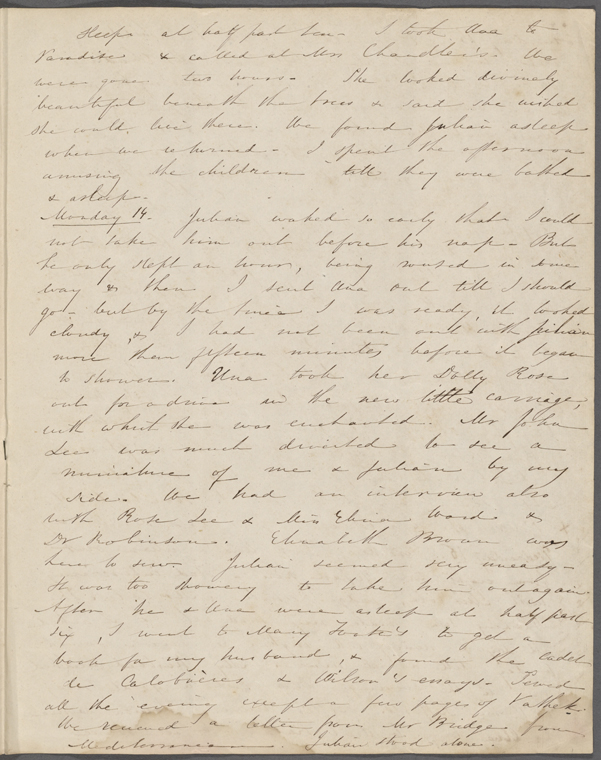 sleeps at half past ten. I took Una to
Paradise & called at Mrs Chandler's. We
were gone two hours. She looked divinely
beautiful beneath the trees & said she wished
she could live there. We found Julian asleep
when we returned. I spent the afternoon
amusing the children till they were bathed
& asleep.
Monday 14. Julian waked so early that I could
not take him out before his nap. But
he only slept an hour, being roused in some
way & then I sent Una out till I should
go. but by the time I was ready, it looked
cloudy, & I had not been out with Julian
more than fifteen minutes before it began
to shower. Una took her Dolly Rose
out for a drive in the new little carriage,
with which she was enchanted. Mr John
Lee was much diverted to see a
miniature of me & Julian by my
side. We had an interview also
with Rose Lee & Miss Ward &
Dr Robinson. Elizabeth Brown was
here to sew. Julian seemed very uneasy.
It was too showery to take him out again
After he & Una were asleep at half past
six, I went to Mary Foote's to get a
book for my husband, & found the
& Wilson's essays. Sewed
all the evening except a few pages of Vathek.
We received a letter from Mr Bridge from
Mediterranean. Julian stood alone.